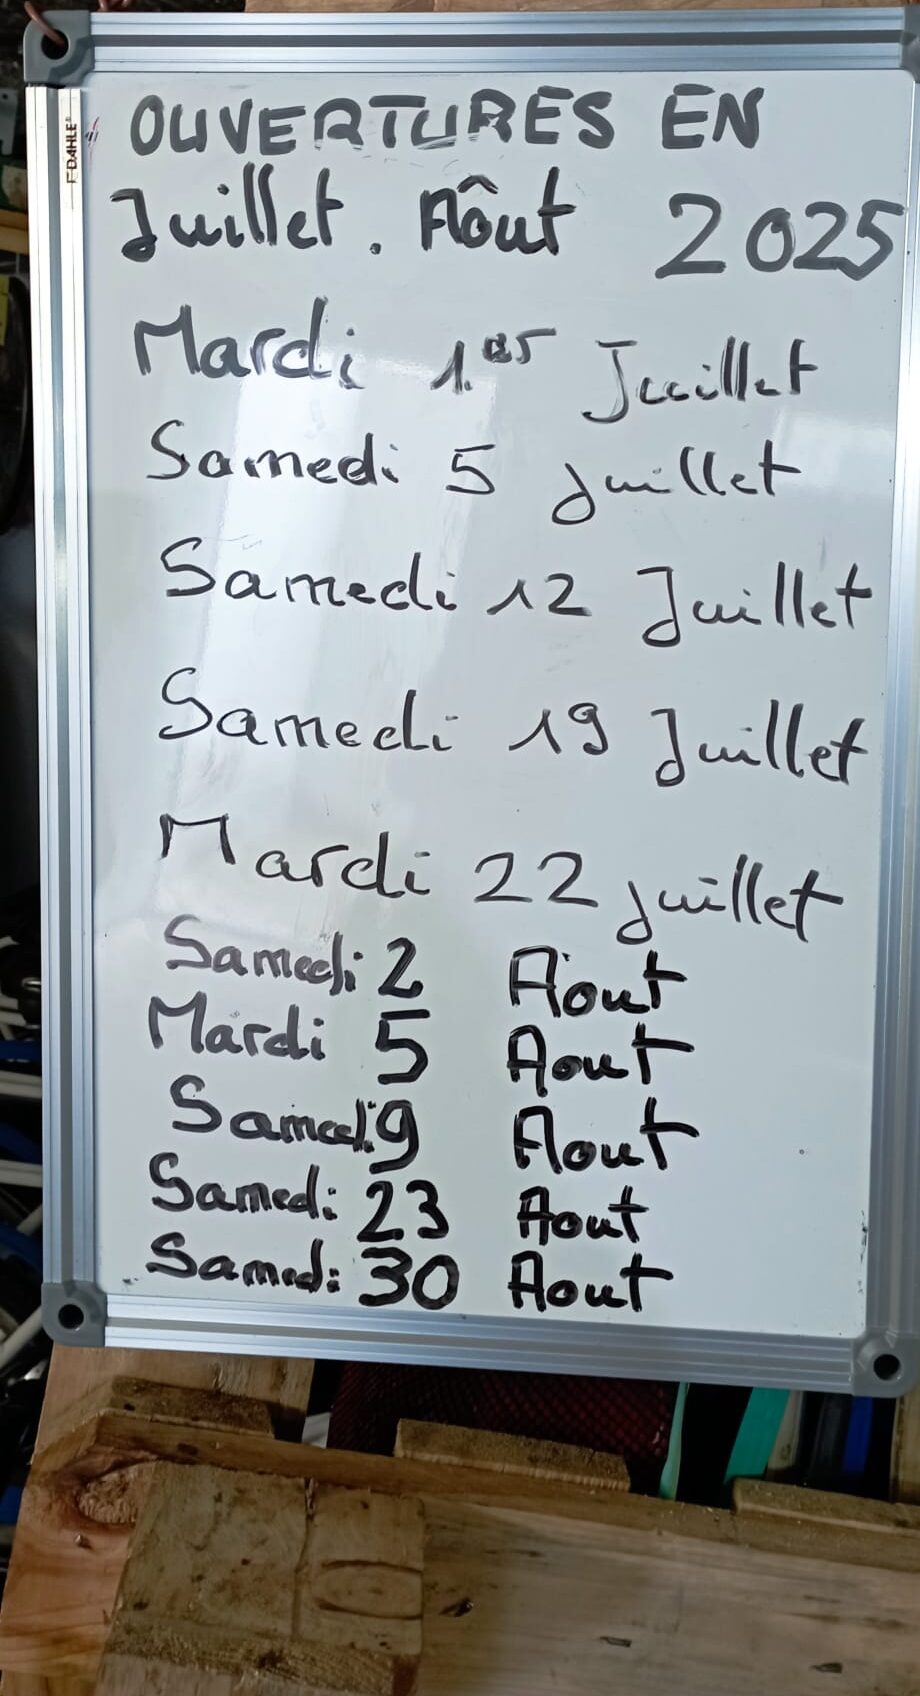 DAHLE
OUVERTURES EN
Juillet. Aôut 2025
Mardi 1er Juillet
Samedi 5 juillet
Samedi 12 Juillet
Samedi 19 Juillet
Mardi 22 juillet
Samedi 2 Aout
Mardi 5 Aout
Samedi 9 Aout
Samedi 23 Aout
Samedi 30 Aout